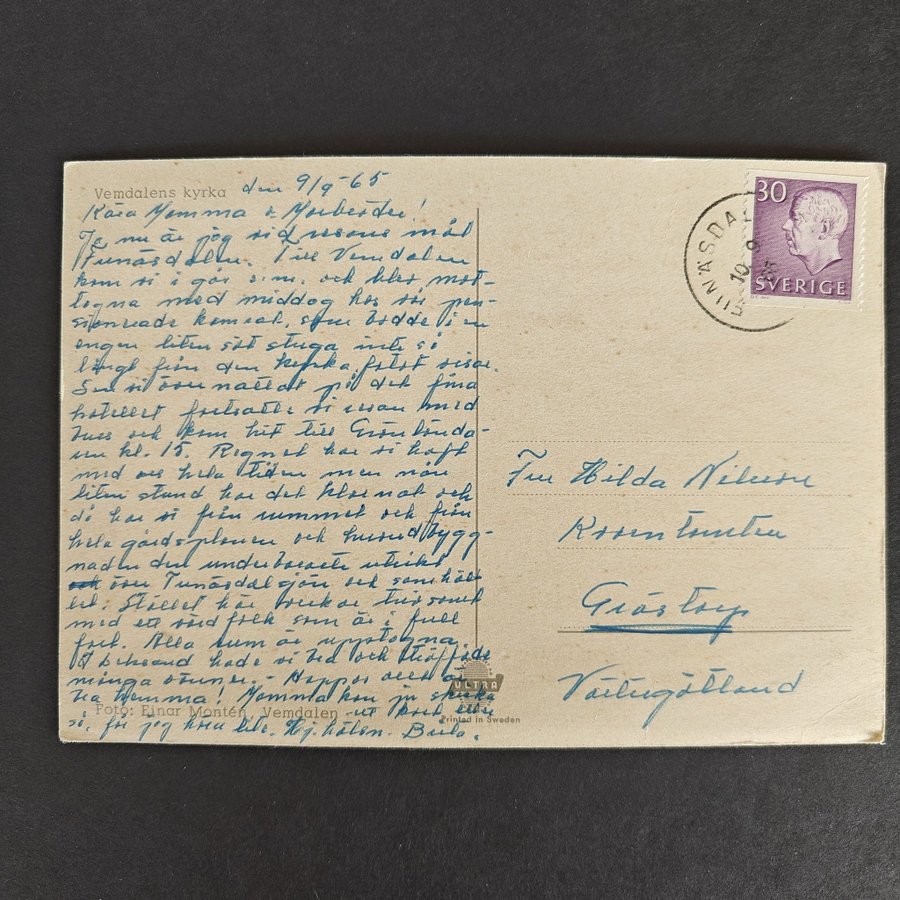 Vemdalens kyrka
den 9/9-65
Kära Mamma & Morbroder!
Ja nu är jag vid resans mål
Funäsdalen. Till Vemdalen
kom vi i går e.m. och blev mot-
togna med middag hos vår pen-
sionerade kamrat, som bodde i en
egen liten söt stuga inte så
långt från den kyrka fotot visar.
Sen vi övernattat på det fina
hotellet fortsatte vi resan med
buss och kom hit till
kl. 15. Regnat har vi haft
med oss hela tiden men någon
liten stund har det klarnat och
då har vi från rummet och från
hela gårdsplanen och huvudbygg-
naden den underbaraste utsikt
över Funäsdalsjön och samhäl-
let. Stället här verkar trivsamt
med ett värdfolk som är i full
fart. Alla rum är upptagna.
I hade vi tid och träffade
många vänner. - Hoppas allt är
bra hemma! Mamma kan ju skicka
ett kort eller
så, får jag höra lite. Hj. hälsn.
Foto: Einar Montén, Vemdalen
ULTRA
Printed in Sweden
30
SVERIGE
FUNÄSDALEN
10 9
65
Fru Hilda Nilsson
Rosentomten
Grästorp
Västergötland